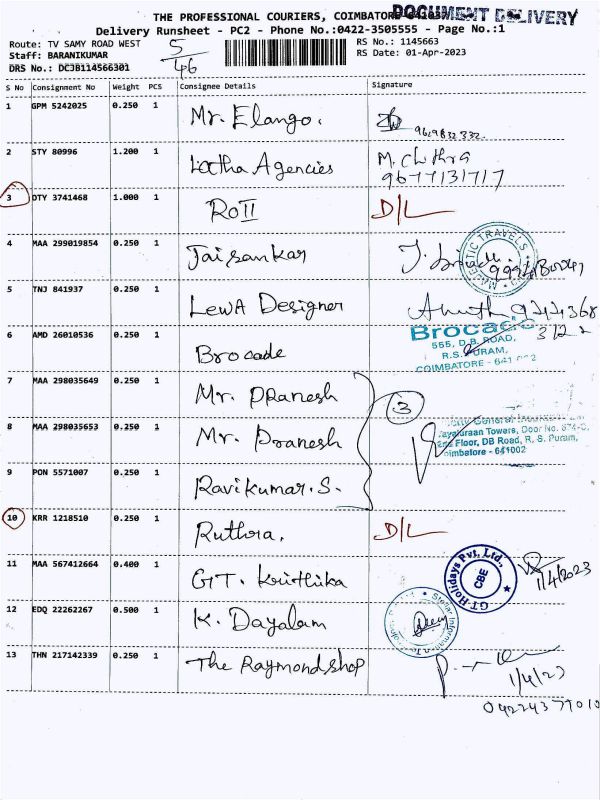 THE PROFESSIONAL COURIERS, COIMBATORE
DOCUMENT DELIVERY
Delivery Runsheet - PC2 - Phone No.:0422-3505555 - Page No.:1
Route: TV SAMY ROAD WEST
5
RS No.: 1145663
Staff: BARANIKUMAR
46
RS Date: 01-Apr-2023
DRS No.: DCJB114566301
S No Consignment No Weight PCS Consignee Details Signature
1 GPM 5242025 0.250 1 Mr. Elango. 9629832332
2 STY 80996 1.200 1 Latha Agencies M. Chithra
9677131717
3 DTY 3741468 1.000 1 D/L
4 MAA 299019854 0.250 1 Jaisankar
MAJESTIC TRAVELS
5 TNJ 841937 0.250 1 LewA Designer
6 AMD 26010536 0.250 1 Brocade
Brocade
555, D.B. ROAD,
R.S. PURAM,
COIMBATORE - 641
7 MAA 298035649 0.250 1 Mr. PRanesh
3
8 MAA 298035653 0.250 1 Mr. Pranesh
General
Towers, Door No.
Floor, DB Road, R. S. Puram,
oimbatore - 641002
9 PON 5571007 0.250 1 Ravikumar. S.
10 KRR 1218510 0.250 1 Ruthra. D/L
11 MAA 567412664 0.400 1 GT. Krithika
GT Holidays Pvt, Ltd.,
CBE
1/4/2023
12 EDQ 22262267 0.500 1 K. Dayalam
13 THN 217142339 0.250 1 The Raymond shop
1/4/23